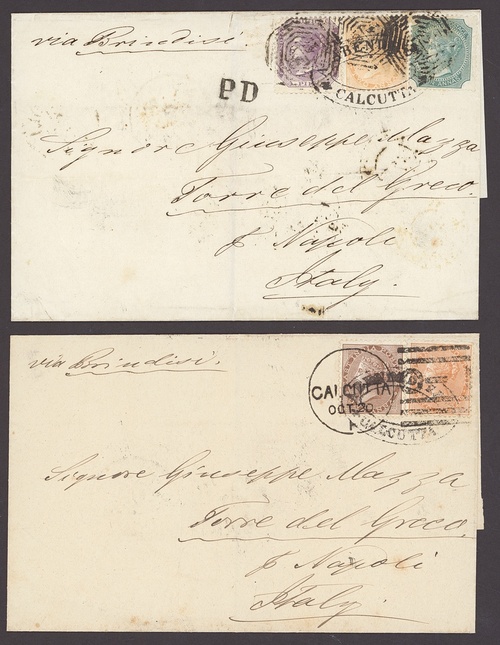 via Brindisi.
PD
CALCUTTA
Signore Giuseppe Mazza
Torre del Greco.
p Napoli
Italy.
via Brindisi.
CALCUTTA
OCT 20
CALCUTTA
Signore Giuseppe Mazza
Torre del Greco.
p Napoli
Italy.